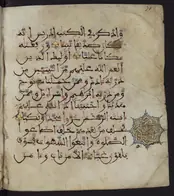 واذكر في الكتب ادريس انه
كان صديقا نبيا ورفعنه
مكانا عليا اولئك الذين
انعم الله عليهم من النبيين من
ذرية ادم وممن حملنا مع نوح
ومن ذرية ابرهيم واسرءيل وممن
هدينا واجتبينا اذا تتلى عليهم
ءايت الرحمن خروا سجدا وبكيا
فخلف من بعدهم خلف اضاعوا
الصلوة واتبعوا الشهوت فسوف
يلقون غيا الا من تاب وءامن